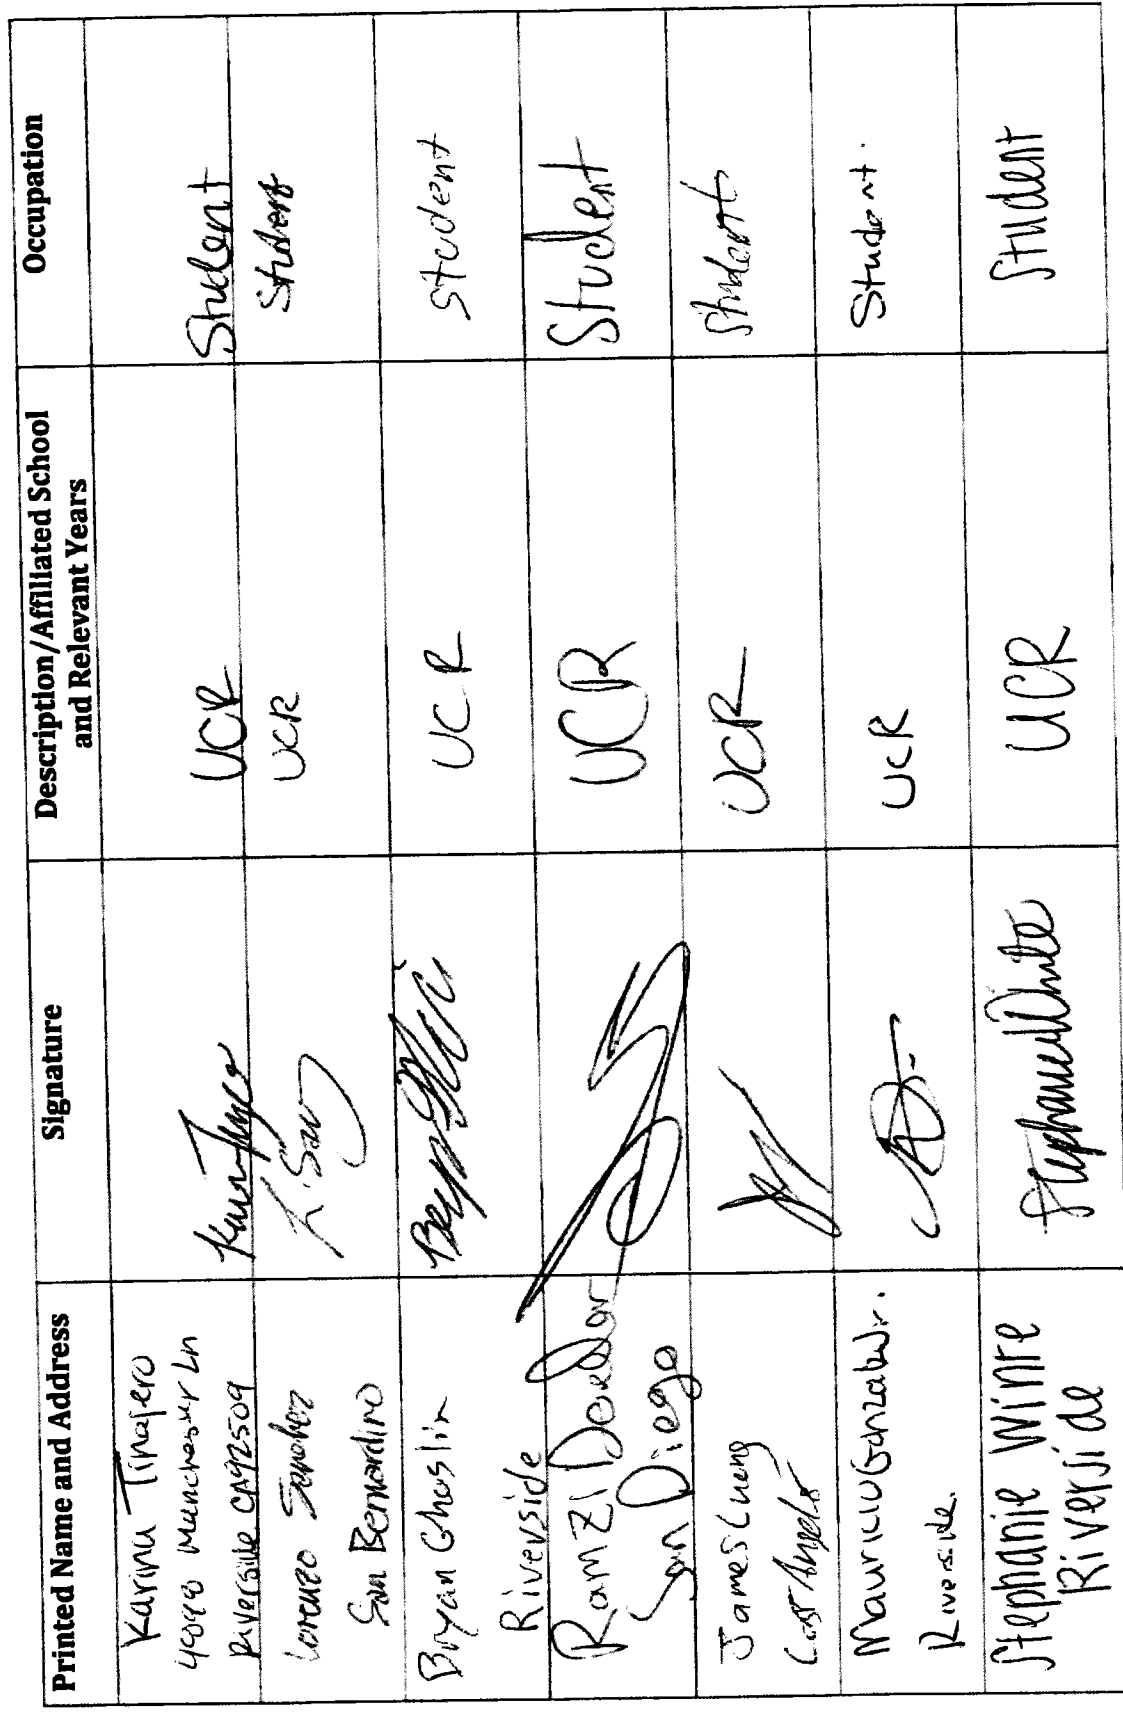 Printed Name and Address
Signature
Description/Affiliated School
and Relevant Years
Occupation
Karina Tinajero
Manchester Ln
Riverside CA 92509
UCR
Student
Lorenzo Sanchez
San Bernardino
L. San
UCR
Student
Bryan Ghoslin
Riverside
UCR
Student
Ramzi
San Diego
UCR
Student
James
Los Angeles
UCR
Student
Mauricio Gonzalez Jr.
Riverside.
UCR
Student.
Stephanie
Riverside
Stephanie White
UCR
Student